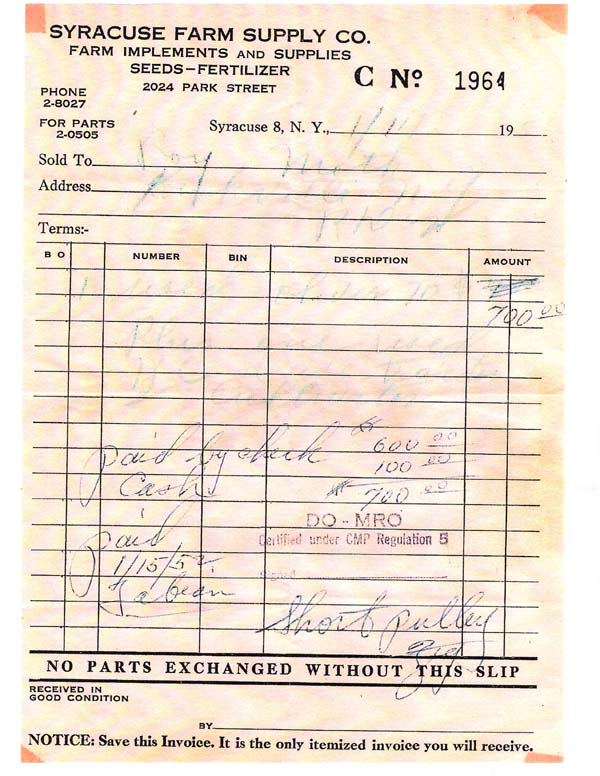 SYRACUSE FARM SUPPLY CO.
FARM IMPLEMENTS AND SUPPLIES
SEEDS-FERTILIZER
2024 PARK STREET
C Nº 1964
PHONE
2-8027
FOR PARTS
2-0505
Syracuse 8, N. Y., 19
Sold To Roy
Address
Terms:-
B O NUMBER BIN DESCRIPTION AMOUNT
1 used
700 00
Plus one used
paid by check $ 600 00
100 00
Cash $ 700 00
DO - MRO
Certified under CMP Regulation 5
Signed
paid
1/15/52
Short pulley
NO PARTS EXCHANGED WITHOUT THIS SLIP
RECEIVED IN
GOOD CONDITION
BY
NOTICE: Save this Invoice. It is the only itemized invoice you will receive.